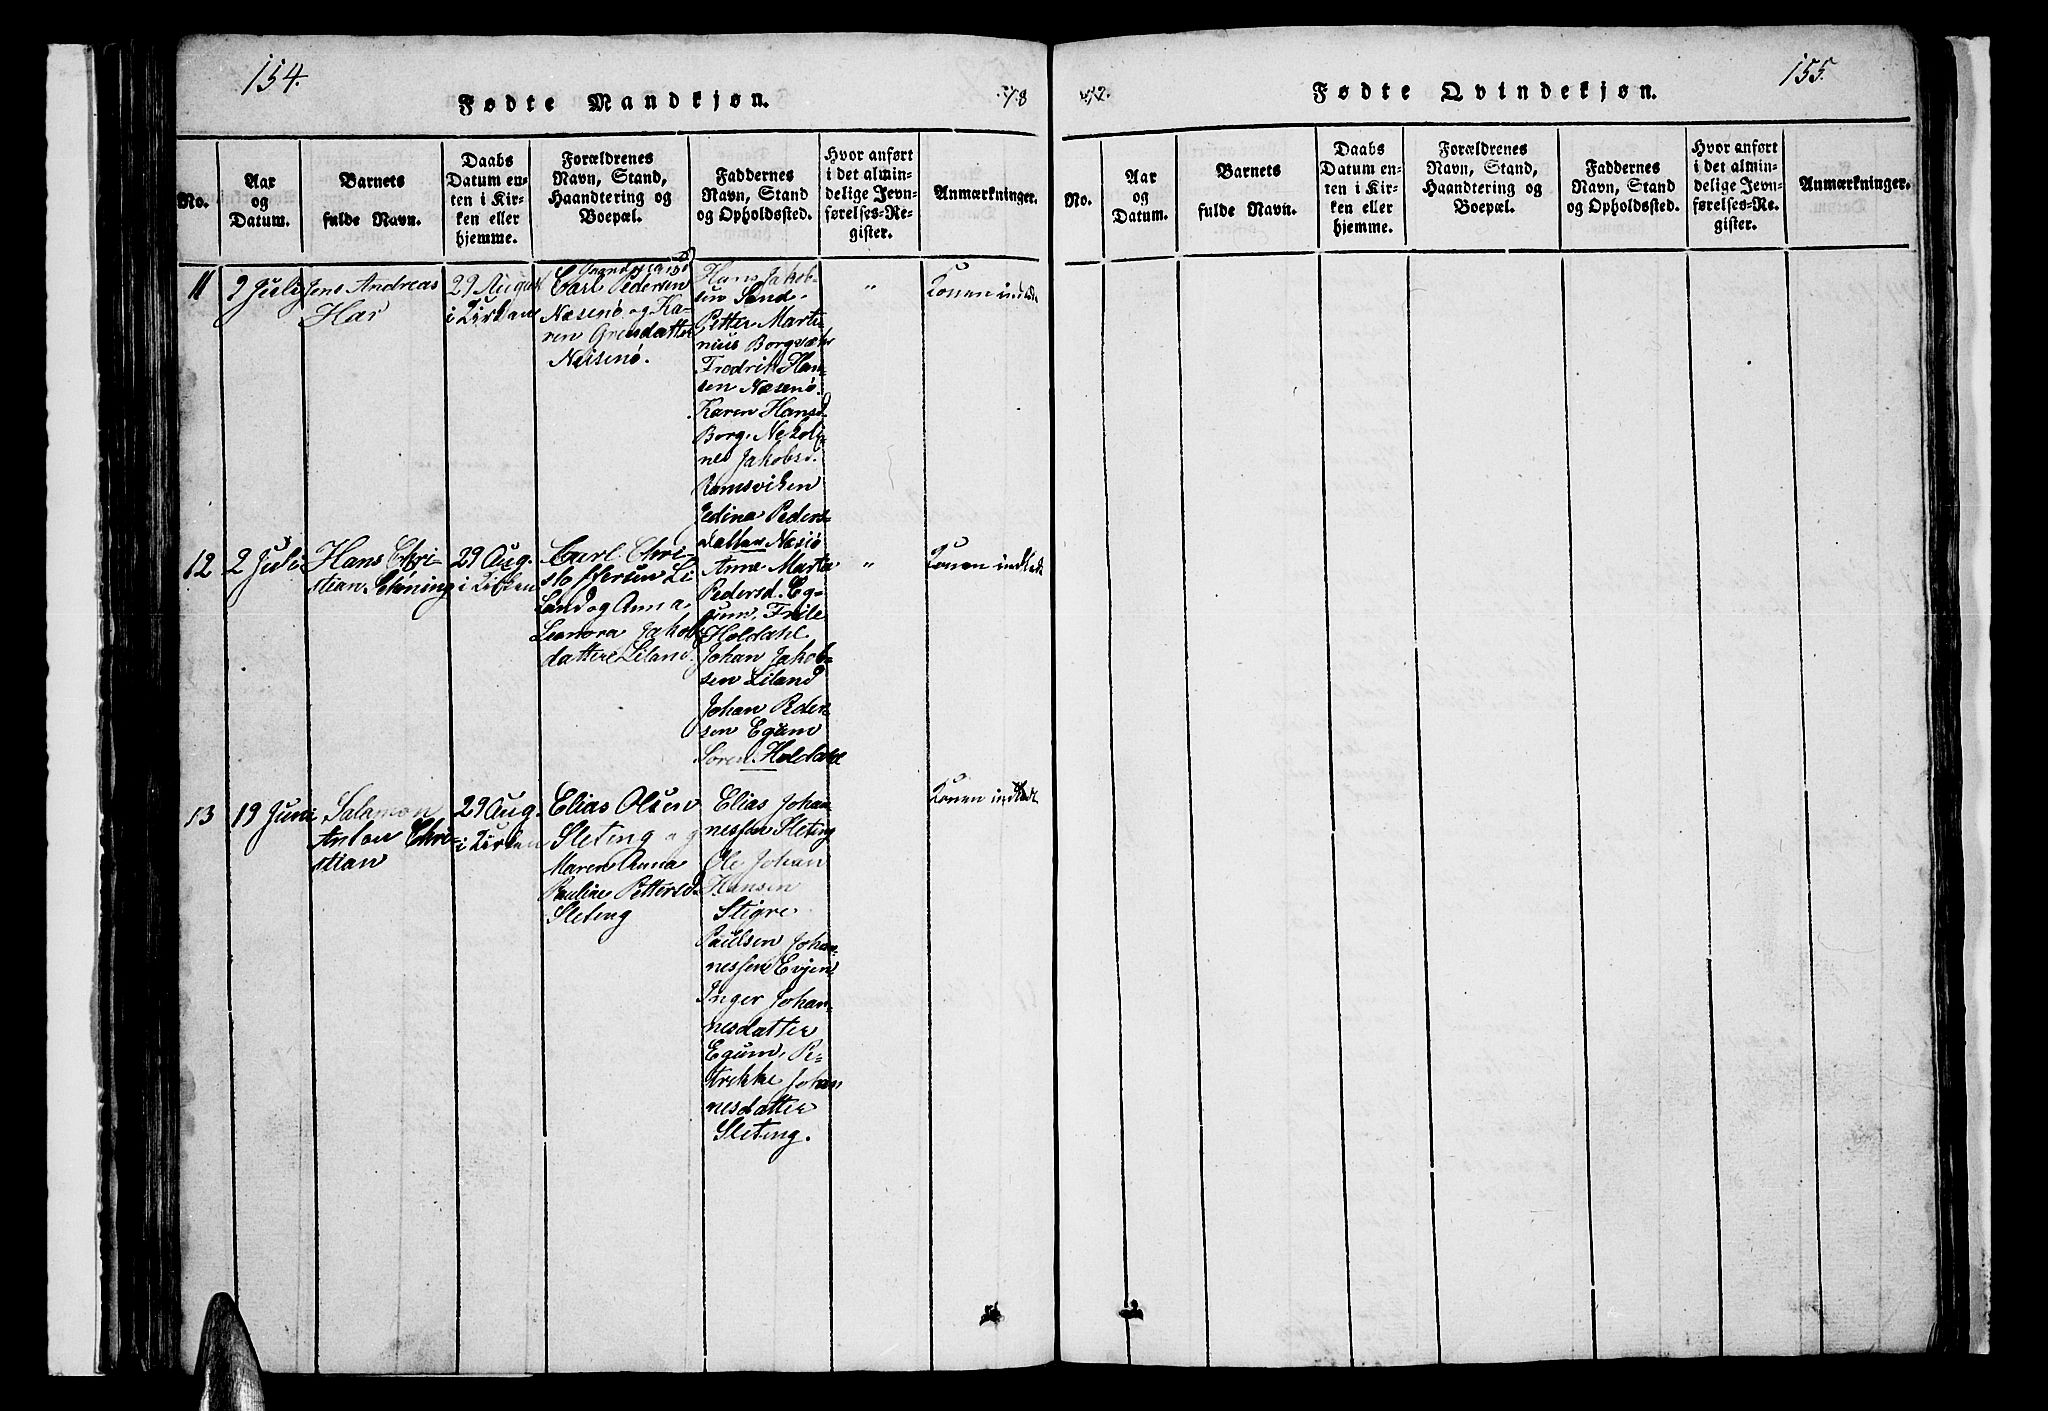 154.
Fødte Mandkjøn.
78
No.
Aar
og
Datum.
Barnets
fulde Navn.
Daabs
Datum en-
ten i Kir-
ken eller
hjemme.
Forældrenes
Navn, Stand,
Haandtering og
Boepæl.
Faddernes
Navn, Stand
og Opholdssted.
Hvor anført
i det almin-
delige Jevn-
førelses-Re-
gister.
Anmærkninger.
11
2 Juli
Jens Andreas
Har
29 August
i Kirken
Gaardmand
Carl Pedersen
Næsenø og Ka-
ren Gresdatter
Neisenø.
Hans Jakob-
sen Sand-
Petter Marti
nius Borgvær
Fredrik Han-
sen Næsenø.
Karen Hansd.
Borg. Nekoli-
ne Jakobsd.
Ramsviken
Edina Peders-
datter Næsø
"
Konen indledt
12
2 Juli
Hans Chri-
stian Lehning
29 Aug.
i Kirken
Carl Chri-
stoffersen Li
land og Anna
Leonora Jakobs
datter Liland.
Anne Marta
Pedersd. Eg-
gum,
Holdahl
Johan Jakob-
sen Liland
Johan Peder-
sen Egum
Søren Holdahl
"
Konen indledt
13
19 Juni
Salamon
Anton Chri-
stian
29 Aug.
i Kirken
Elias Olsen
Sleting og
Maren Anna
Pauline Pettersd.
Sleting
Elias Johan
nessen Sleting
Ole Johan
Hansen
Stigre.
Paulsen Johan-
nessen Evjen
Inger Johan-
nesdatter
Egum. Pe-
trekke Johan
nesdatter
Sleting.
Konen indledt
155.
Fødte Qvindekjøn.
No.
Aar
og
Datum.
Barnets
fulde Navn.
Daabs
Datum en-
ten i Kir-
ken eller
hjemme.
Forældrenes
Navn, Stand,
Haandtering og
Boepæl.
Faddernes
Navn, Stand
og Opholdssted.
Hvor anført
i det almin-
delige Jevn-
førelses-Re-
gister.
Anmærkninger.